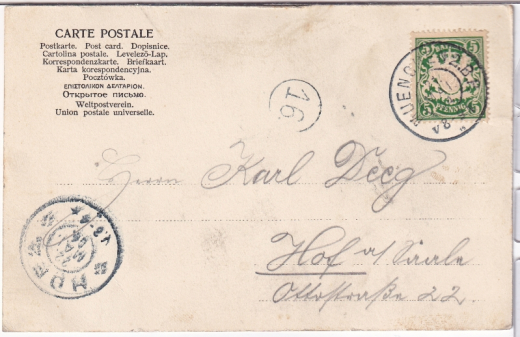 CARTE POSTALE
Postkarte. Post card. Dopisnice.
Cartolina postale. Levelező-Lap.
Korrespondenzkarte. Briefkaart.
Karta korespondencyjna.
Pocztówka.
ΕΠΙΣΤΟΛΙΚΟΝ ΔΕΛΤΑΡΙΟΝ.
Открытое письмо.
Weltpostverein.
Union postale universelle.
5 5
PFENNIG
5 5
16
Herrn Karl Deeg
Hof a/Saale
Ottostraße 22.
HOF